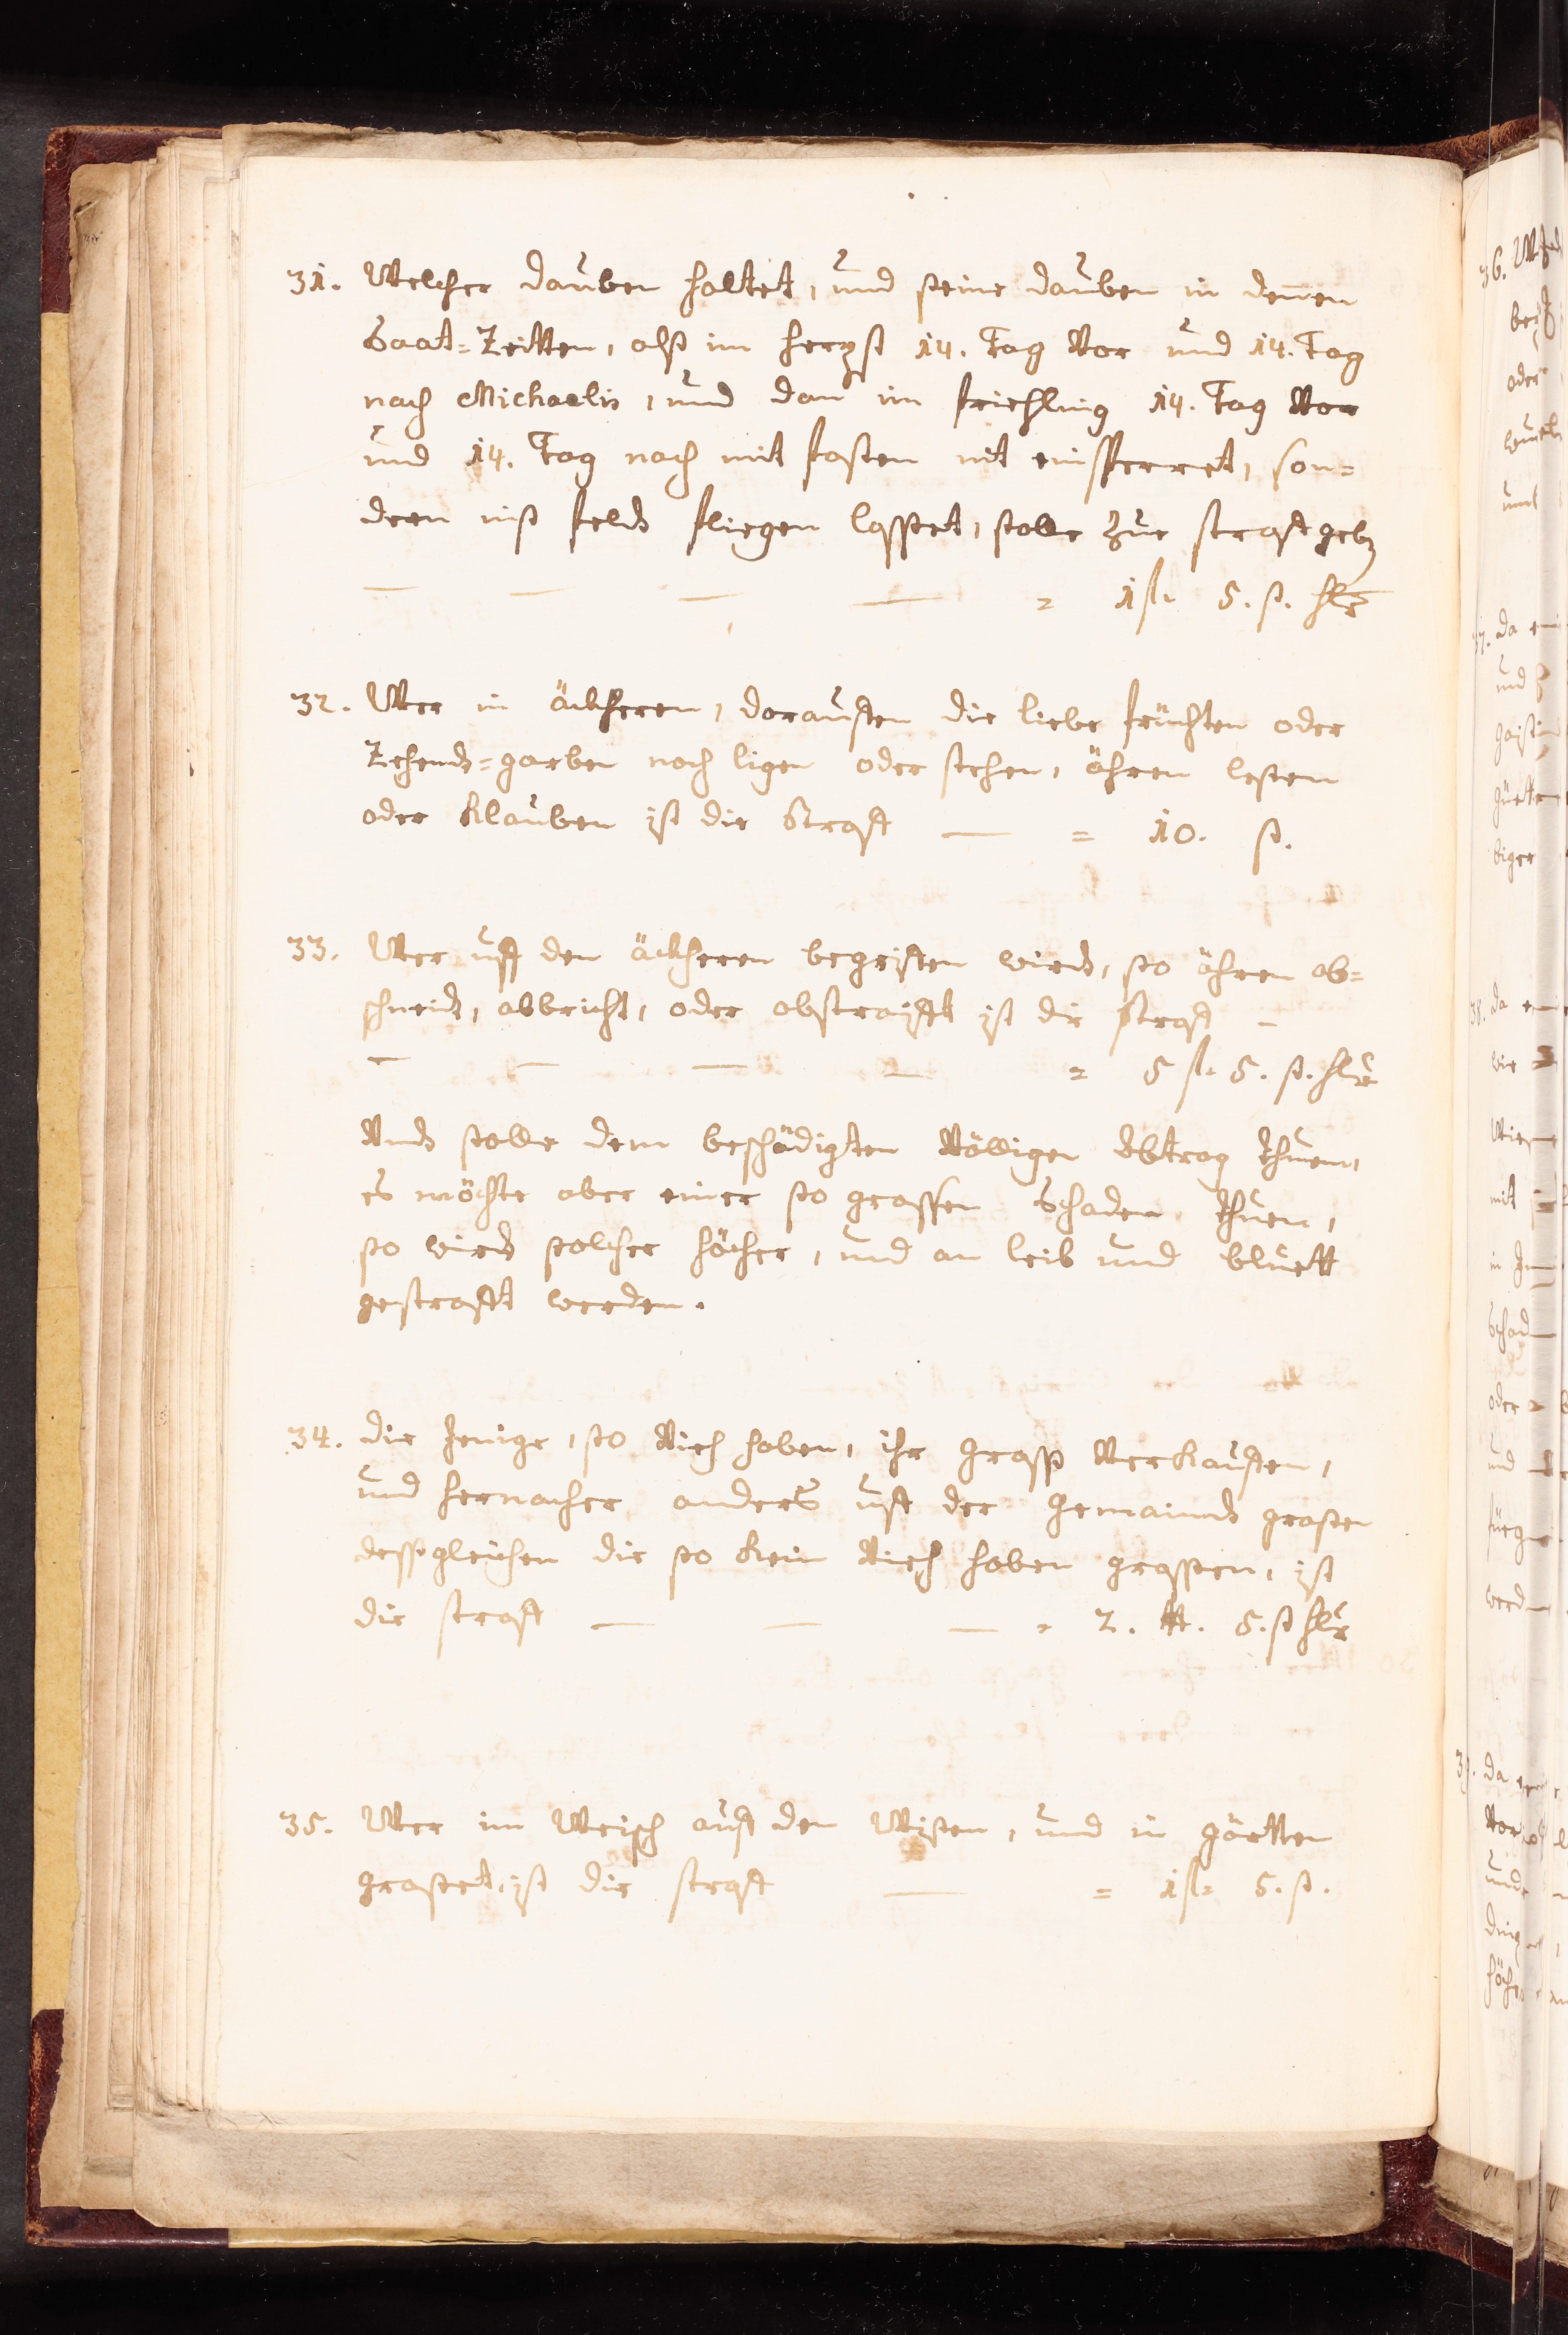 31. Welcher dauben haltet, und seine dauben in denen
Saat=Zeitten, alß im herpst 14. Tag Vor und 14. Tag
nach Michaelis, und dan im friehling 14. Tag Vor
und 14. Tag nach mit fasten nit einsperret, son=
deren inß feldt fliegen lasset, solle zur straff geben
— — — — = 1 fl. 5. ß. hlr
32. Wer in äckheren, darauffen die liebe früchten oder
Zehendt=garben noch ligen oder stehen, ähren lesen
oder klauben ist die Straff — = 10. ß.
33. Wer uff den äckheren begriffen wirdt, so ähren ab=
schneidt, abbricht, oder abstraifft ist die Straff –
— — — — = 5 fl. 5. ß. hlr
Undt solle dem beschädigten Völligen Abtrag thuen,
es möchte aber einer so grossen Schaden thuen,
so wirdt solcher höcher, und an leib und bluett
gestrafft werden.
34. die Jenige, so Vieh haben, ihr Graß Verkauffen,
und hernacher anderß uff der Gemaindt grasen
deßgleichen die so kein Vieh haben grassen, ist
die straff — — — = 2. ₶. 5. ß hlr
35. Wer im Weisch auff den Wisen, und in gärtten
graset, ist die straff — = 1 fl. 5. ß.
36.
oder
und
37. da
und
biger
38. da
wie
mit
oder
und
39. da
Vor